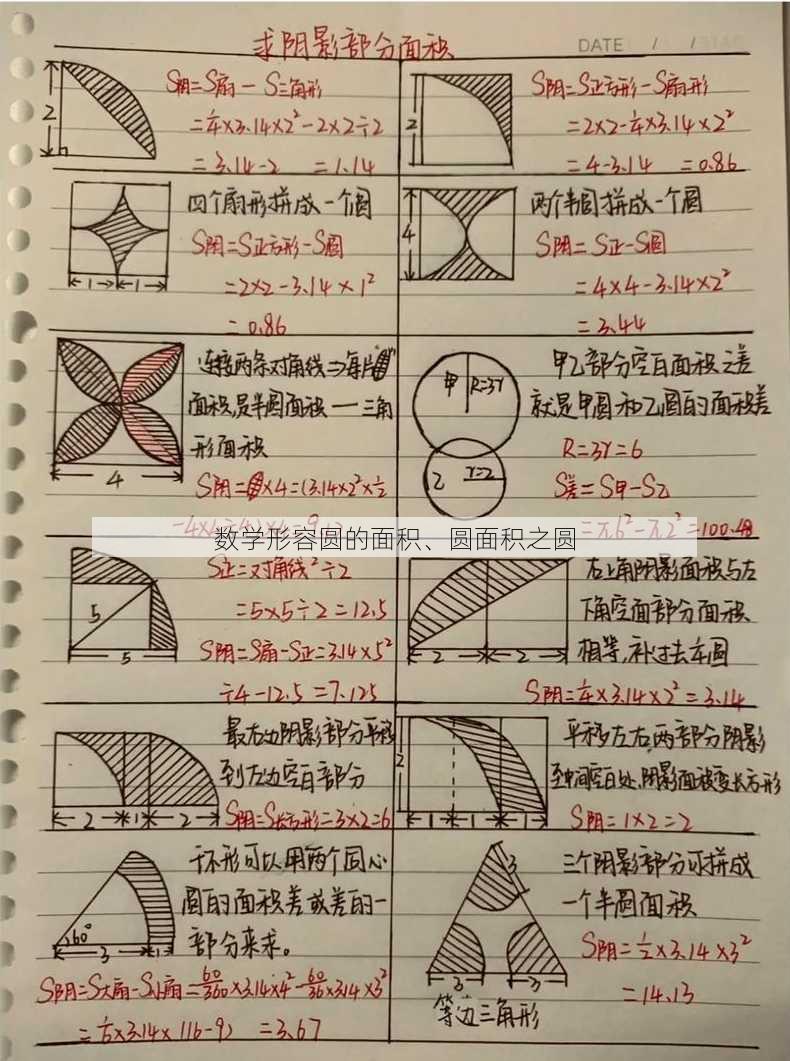 求阴影部分面积
DATE / /
2
S阴=S扇-S三角形
=¼×3.14×2²-2×2÷2
=3.14-2 =1.14
2
S阴=S正方形-S扇形
=2×2-¼×3.14×2²
=4-3.14 =0.86
四个扇形拼成一个圆
S阴=S正方形-S圆
=2×2-3.14×1²
=0.86
1 1
两个半圆拼成一个圆
S阴=S正-S圆
=4×4-3.14×2²
=3.44
4
连接两条对角线⇒每片
面积是半圆面积-三角
形面积
S阴= ×4=(3.14×2²×½
4
甲乙部分空白面积之差
就是甲圆和乙圆的面积差
R=3r=6
S差=S甲-S乙
=π6²-π2²=100.48
甲 R=3r
乙 r=2
数学形容圆的面积、圆面积之圆
S正=对角线²÷2
=5×5÷2=12.5
S阴=S扇-S正=3.14×5²
÷4-12.5=7.125
5
5
右上角阴影面积与左
下角空面部分面积
相等,补过去车圆
S阴=¼×3.14×2²=3.14
2 2
最右边阴影部分平移
到左边空白部分
S阴=S长方形=3×2=6
2 1 2
平移左右两部分阴影
至中间空白处,阴影面积变长方形
S阴=1×2=2
2
1 1 1
环形可以用两个同心
圆的面积差或差的一
部分来求。
60°
3 1
S阴=S大扇-S小扇=60/360×3.14×4²-60/36×3.14×3²
=⅙×3.14×(16-9) =3.67
三个阴影部分可拼成
一个半圆面积
S阴=½×3.14×3²
=14.13
3
3 3
等边三角形